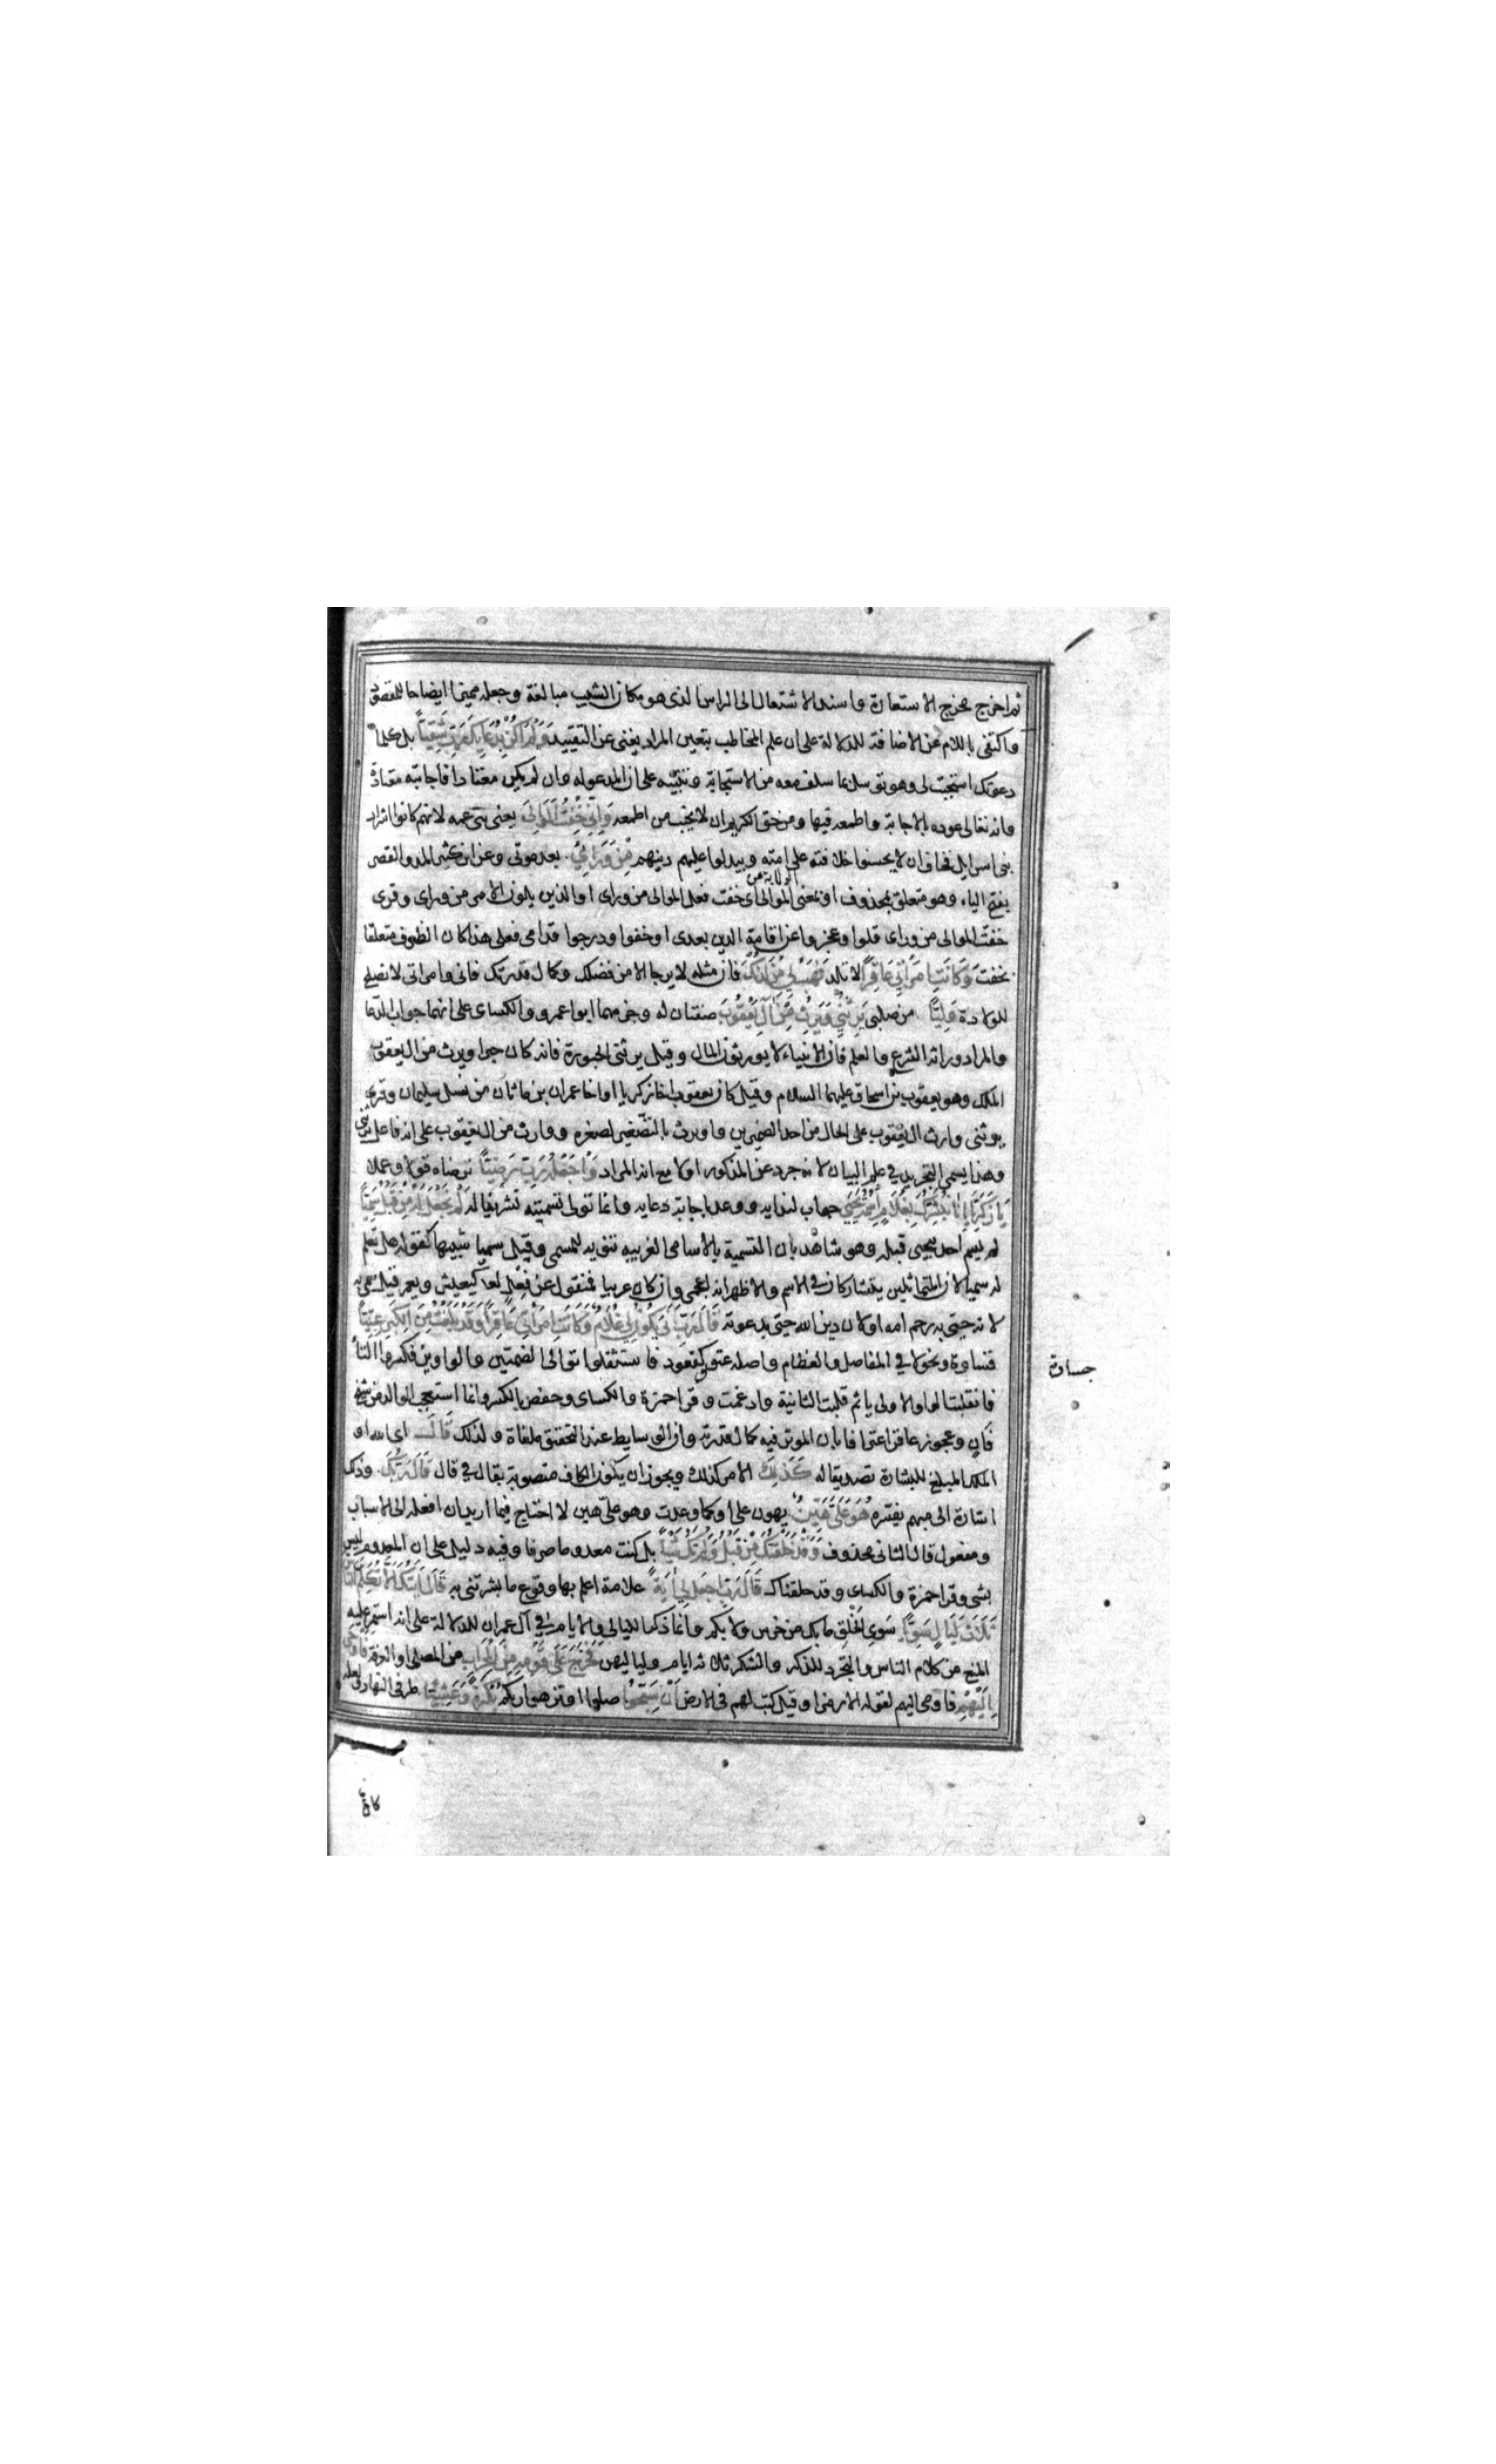 ثم اخرج مخرج الاستعارة واسند الاشتعال الى الراس الذى هو مكان الشيب مبالغة وجعله مميزا ايضاحا للمقصود
واكتفى باللام عن الاضافة للدلالة على ان علم المخاطب بتعين المراد يغنى عن التقييد وَلَمْ اَكُنْ بِدُعَائِكَ رَبِّ شَقِيًّا بل كلما
دعوتك استجبت لى وهو توسل بما سلف معه من الاستجابة وتنبيه على ان المدعو له وان لم يكن معتادا فاجابته معتادة
وانه تعالى عوده بالاجابة واطمعه فيها ومن حق الكريم ان لا يخيب من اطمعه وَاِنِّي خِفْتُ الْمَوَالِيَ يعنى بنى عمه لانهم كانوا اشرار
بنى اسرايل فخاف ان لا يحسنوا خلافته على امته ويبدلوا عليهم دينهم مِنْ وَرَائِي بعد موتى وعن ابن كثير المد والقصر
بفتح الياء وهو متعلق بمحذوف او بمعنى الموالى اى خفت فعل الموالى من وراى او الذين يلون الامر من وراى وقرى
خفت الموالى من وراى قلوا وعجزوا عن اقامة الدين بعدى او خفوا ودرجوا قدامى فعلى هذا كان الظرف متعلقا
بخفت وَكَانَتِ امْرَاَتِي عَاقِرًا لا تلد فَهَبْ لِي مِنْ لَدُنْكَ فان مثله لا يرجا الا من فضلك وكمال قدرتك فانى وامراتى لا نصلح
للولادة وَلِيًّا من صلبى يَرِثُنِي وَيَرِثُ مِنْ اٰلِ يَعْقُوبَ صفتان له وجزمهما ابو عمرو والكساى على انهما جواب الدعا
والمراد وراثة الشرع والعلم فان الانبياء لا يورثون المال وقيل يرثنى الحبورة فانه كان حبرا ويرث من ال يعقوب
الملك وهو يعقوب بن اسحاق عليهما السلام وقيل كان يعقوب اخا زكريا او اخا عمران بن ماثان من نسل سليمان وقرئ
يرثنى وارث ال يعقوب على الحال من احد الضميرين واويرث بالتصغير لصغره ووارث من ال يعقوب على انه فاعل يرثنى
وهذا يسمى التجريد في علم البيان لانه جرد عن المذكور اولا مع انه المراد وَاجْعَلْهُ رَبِّ رَضِيًّا ترضاه قولا وعملا
يَا زَكَرِيَّا اِنَّا نُبَشِّرُكَ بِغُلَامٍ اسْمُهُ يَحْيَى جواب لندايه ووعد باجابة دعايه وانما تولى تسميته تشريفا له لَمْ نَجْعَلْ لَهُ مِنْ قَبْلُ سَمِيًّا
لم يسم احد بيحيى قبله وهو شاهد بان التسمية بالاسامى الغريبه تنويه للمسمى وقيل سميا شبيها كقوله هل تعلم
له سميا لان المتماثلين يتشاركان في الاسم والاظهر انه اعجمى وان كان عربيا فمنقول عن فعل كيعيش ويعمر قيل سمى به
لانه حيى به رحم امه او لان دين الله حيى بدعوته قَالَ رَبِّ اَنَّى يَكُونُ لِي غُلَامٌ وَكَانَتِ امْرَاَتِي عَاقِرًا وَقَدْ بَلَغْتُ مِنَ الْكِبَرِ عِتِيًّا
قساوة ونحولا في المفاصل والعظام واصله عتوو كقعود فاستثقلوا توالى الضمتين والواوين فكسروا التا
جساوة
فانقلبت الواو الاولى يا ثم قلبت الثانية وادغمت وقرا حمزة والكساى وحفص بالكسر وانما استعجب الولد من شيخ
فان وعجوز عاقر اعترافا بان الموثر فيه كمال قدرته وان الوسايط عند التحقيق ملغاة ولذلك قَالَ اى الله او
الملك المبلغ للبشارة تصديقا له كَذٰلِكَ الامر كذلك ويجوز ان يكون الكاف منصوبة بقال في قال قَالَ رَبُّكَ وذلك
اشارة الى مبهم يفسره هُوَ عَلَيَّ هَيِّنٌ يهون على او كما وعدت وهو على هين لا احتاج فيما اريد ان افعله الى الاسباب
ومفعول قال الثانى محذوف وَقَدْ خَلَقْتُكَ مِنْ قَبْلُ وَلَمْ تَكُ شَيْئًا بل كنت معدوما صرفا وفيه دليل على ان المعدوم ليس
بشى وقرا حمزة والكساى وقد خلقناك قَالَ رَبِّ اجْعَلْ لِي اٰيَةً علامة اعلم بها وقوع ما بشرتنى به قَالَ اٰيَتُكَ اَلَّا تُكَلِّمَ النَّاسَ
ثَلَاثَ لَيَالٍ سَوِيًّا سوى الخلق ما بك من خرس ولا بكم وانما ذكر الليالى والايام في آل عمران للدلالة على انه استمر عليه
المنع من كلام الناس والتجرد للذكر والشكر ثلاثة ايام ولياليهن فَخَرَجَ عَلَى قَوْمِهِ مِنَ الْمِحْرَابِ من المصلى او الغرفة فَاَوْحَى
اِلَيْهِمْ فاومى اليهم لقوله الا رمزا وقيل كتب لهم فى الارض اَنْ سَبِّحُوا صلوا او نزهوا ربكم بُكْرَةً وَعَشِيًّا طرفى النهار ولعله
كان